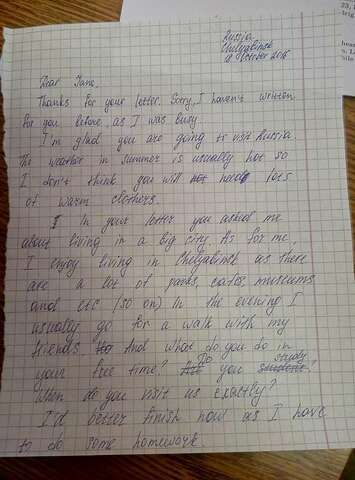 Russia
Chelyabinsk
18 October 2016
Dear Jane,
Thanks for your letter. Sorry, I haven't written
for you before, as I was busy.
I'm glad you are going to visit Russia
The weather in summer is usually hot so
I don't think you will need lots
of warm clothers.
In your letter you asked me
about living in a big city. As for me,
I enjoy living in Chelyabinsk as there
are a lot of parks, cafes, museums
and etc (so on) In the evening I
usually go for a walk with my
friends. And what do you do in
your free time? Do you study?
When do you visit us exactly?
I'd better finish now as I have
to do some homework